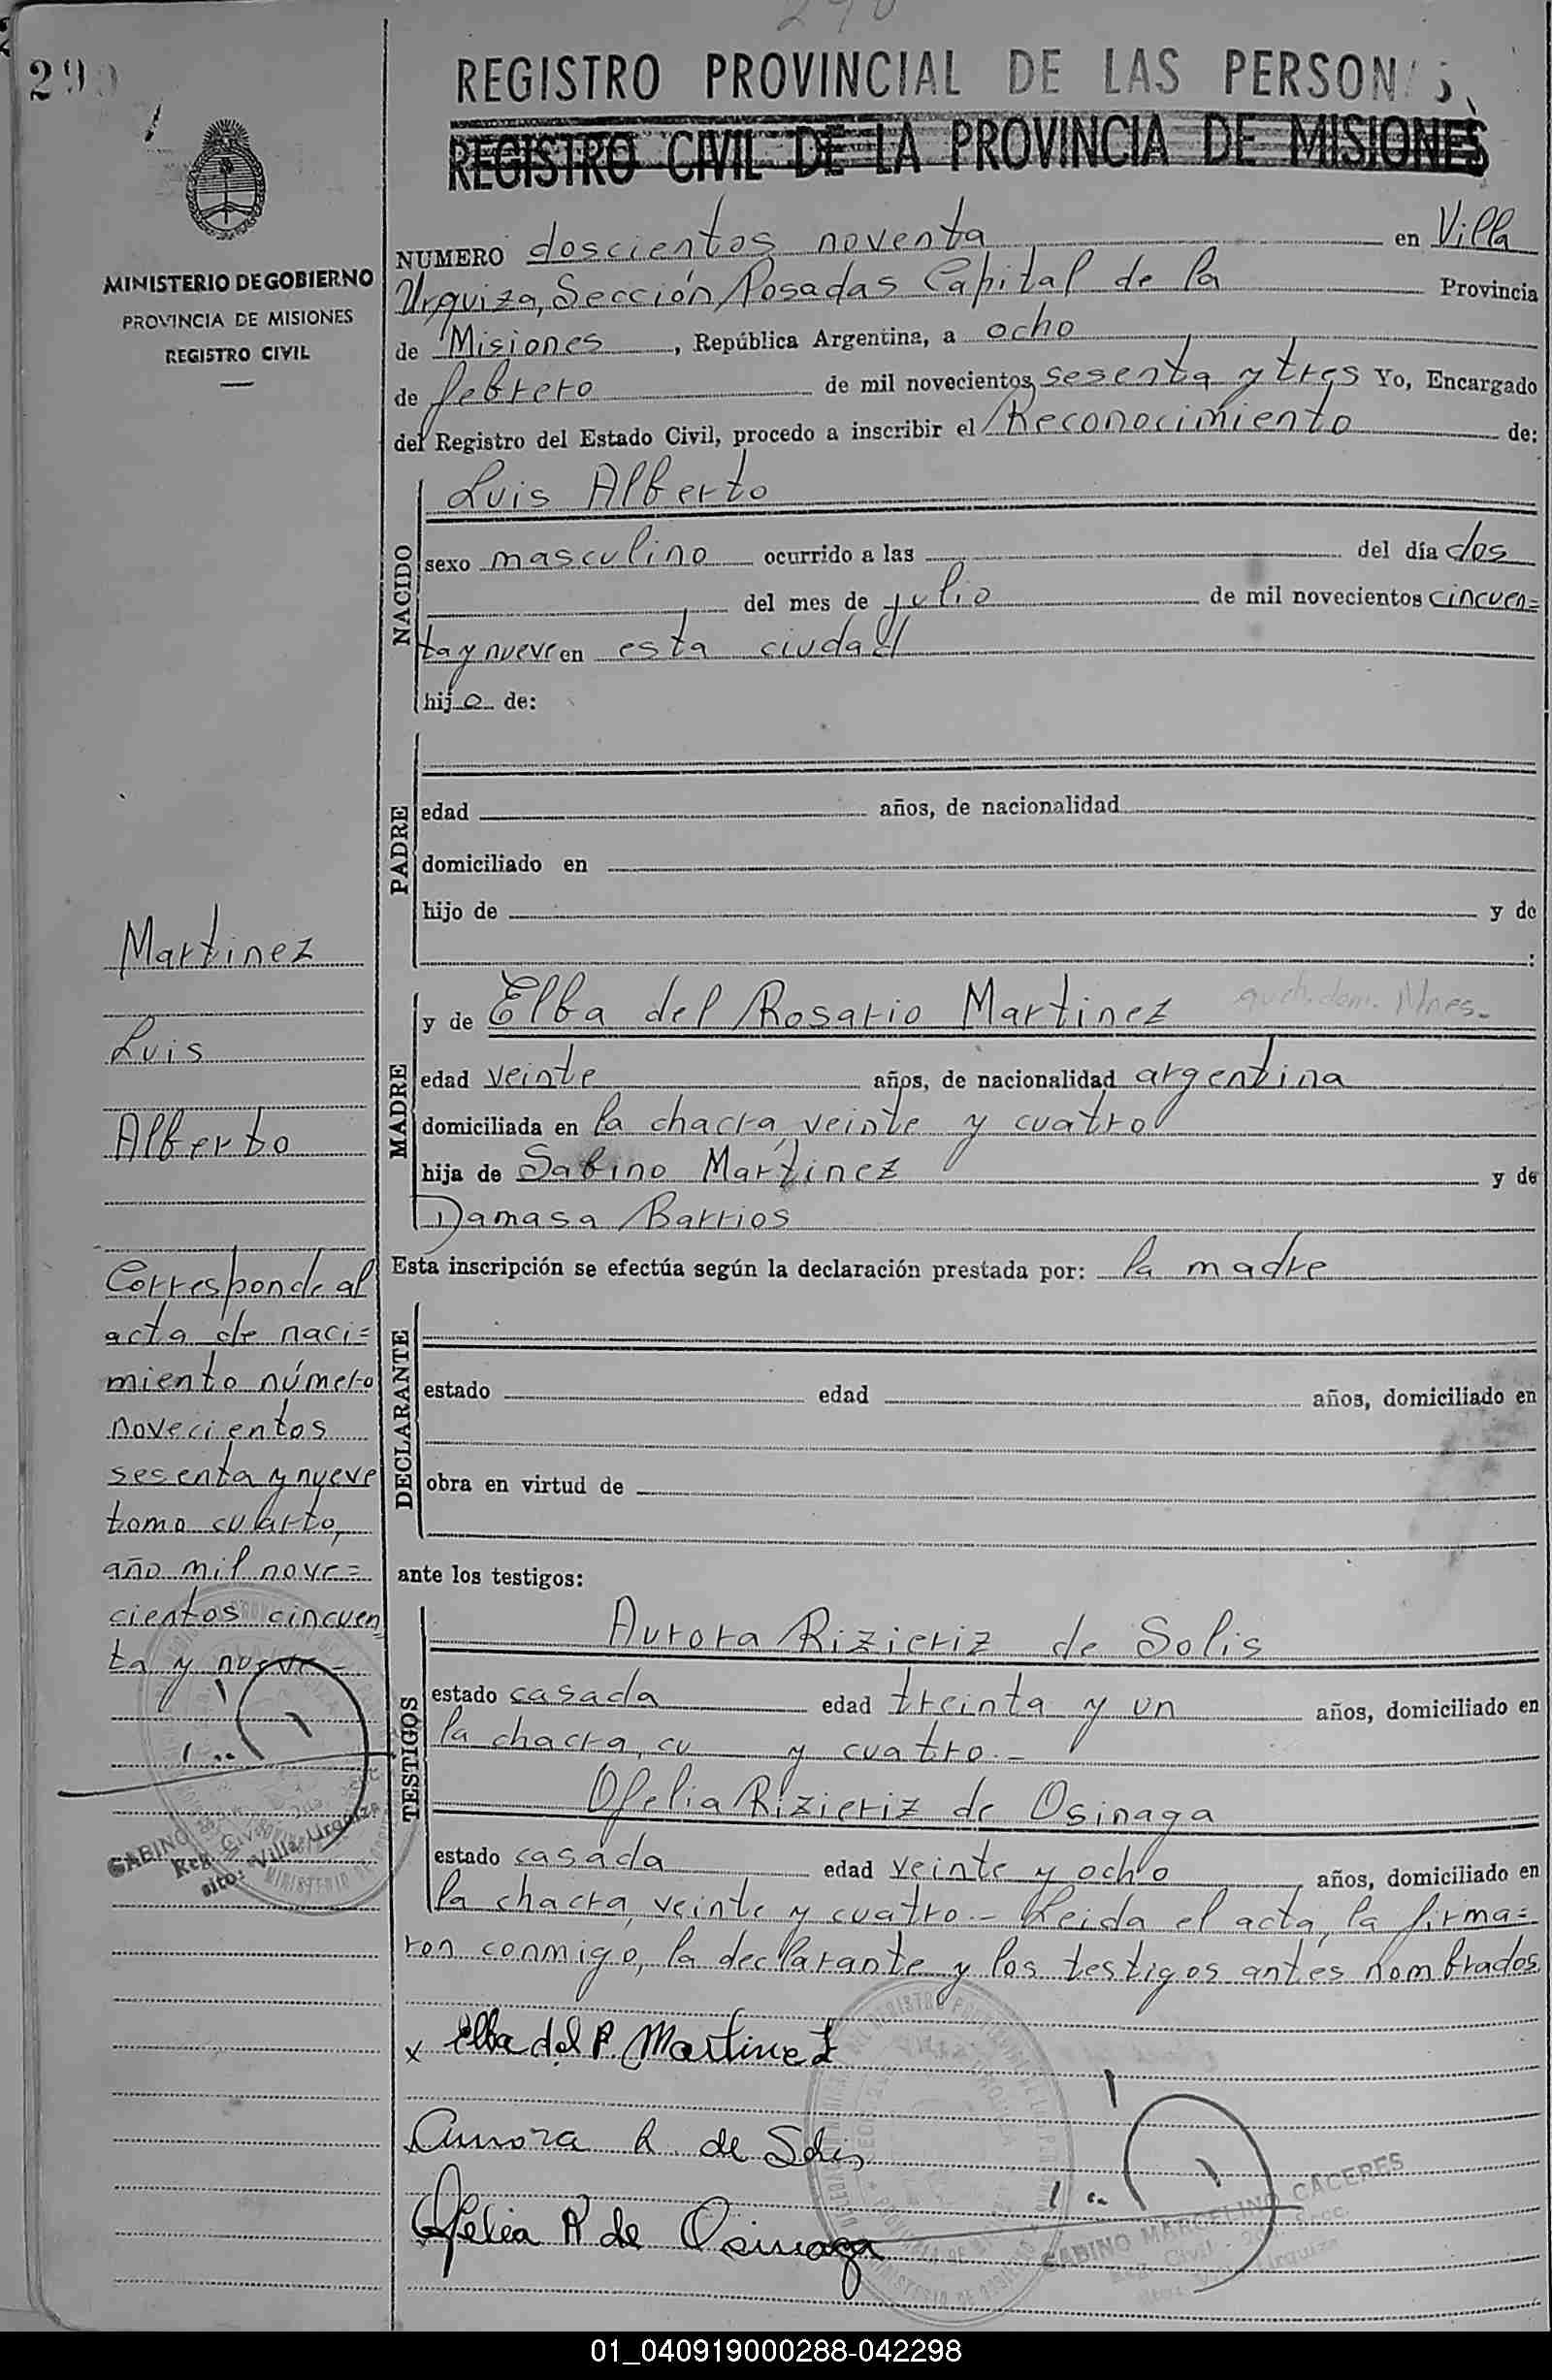 290
290
REGISTRO PROVINCIAL DE LAS PERSONAS
REGISTRO CIVIL DE LA PROVINCIA DE MISIONES
MINISTERIO DE GOBIERNO
PROVINCIA DE MISIONES
REGISTRO CIVIL
NUMERO doscientos noventa en Villa
Urquiza, Sección Posadas Capital de la Provincia
de Misiones, República Argentina, a ocho
de febrero de mil novecientos sesenta y tres Yo, Encargado
del Registro del Estado Civil, procedo a inscribir el Reconocimiento de:
NACIDO
Luis Alberto
sexo masculino ocurrido a las del día dos
del mes de julio de mil novecientos cincuen=
ta y nueve en esta ciudad
hijo de:
PADRE
edad años, de nacionalidad
domiciliado en
hijo de y de
:
MADRE
y de Elba del Rosario Martinez Mnes.
edad veinte años, de nacionalidad argentina
domiciliada en la chacra, veinte y cuatro
hija de Sabino Martinez y de
Damasa Barrios
Esta inscripción se efectúa según la declaración prestada por: la madre
DECLARANTE
estado edad años, domiciliado en
obra en virtud de
ante los testigos:
TESTIGOS
Aurora Rizieriz de Solis
estado casada edad treinta y un años, domiciliado en
la chacra, cu y cuatro.-
Ofelia Rizieriz de Osinaga
estado casada edad veinte y ocho años, domiciliado en
la chacra, veinte y cuatro.- Leida el acta, la firma=
ron conmigo, la declarante y los testigos antes nombrados.
x Elba del R. Martinez
Aurora R. de Solis
Ofelia R de Osinaga
GABINO MARCELINO CACERES
Reg. Civil
Villa Urquiza
Martinez
Luis
Alberto
Corresponde al
acta de naci=
miento número
novecientos
sesenta y nueve
tomo cuarto,
año mil nove=
cientos cincuen
ta y nueve-
GABINO
Reg. Civil
sito: Villa Urquiza
01_040919000288-042298